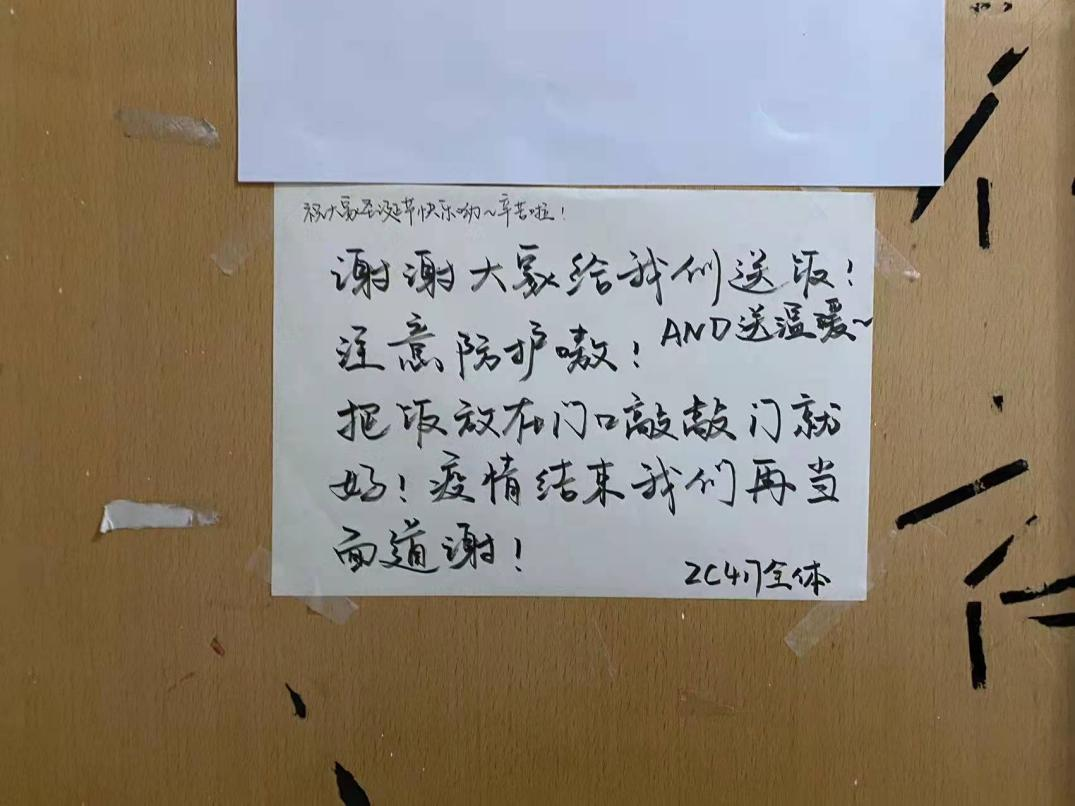 祝大家圣诞节快乐哟~辛苦啦!
谢谢大家给我们送饭!
AND送温暖~
注意防护嗷!
把饭放在门口敲敲门就
好!疫情结束我们再当
面道谢!